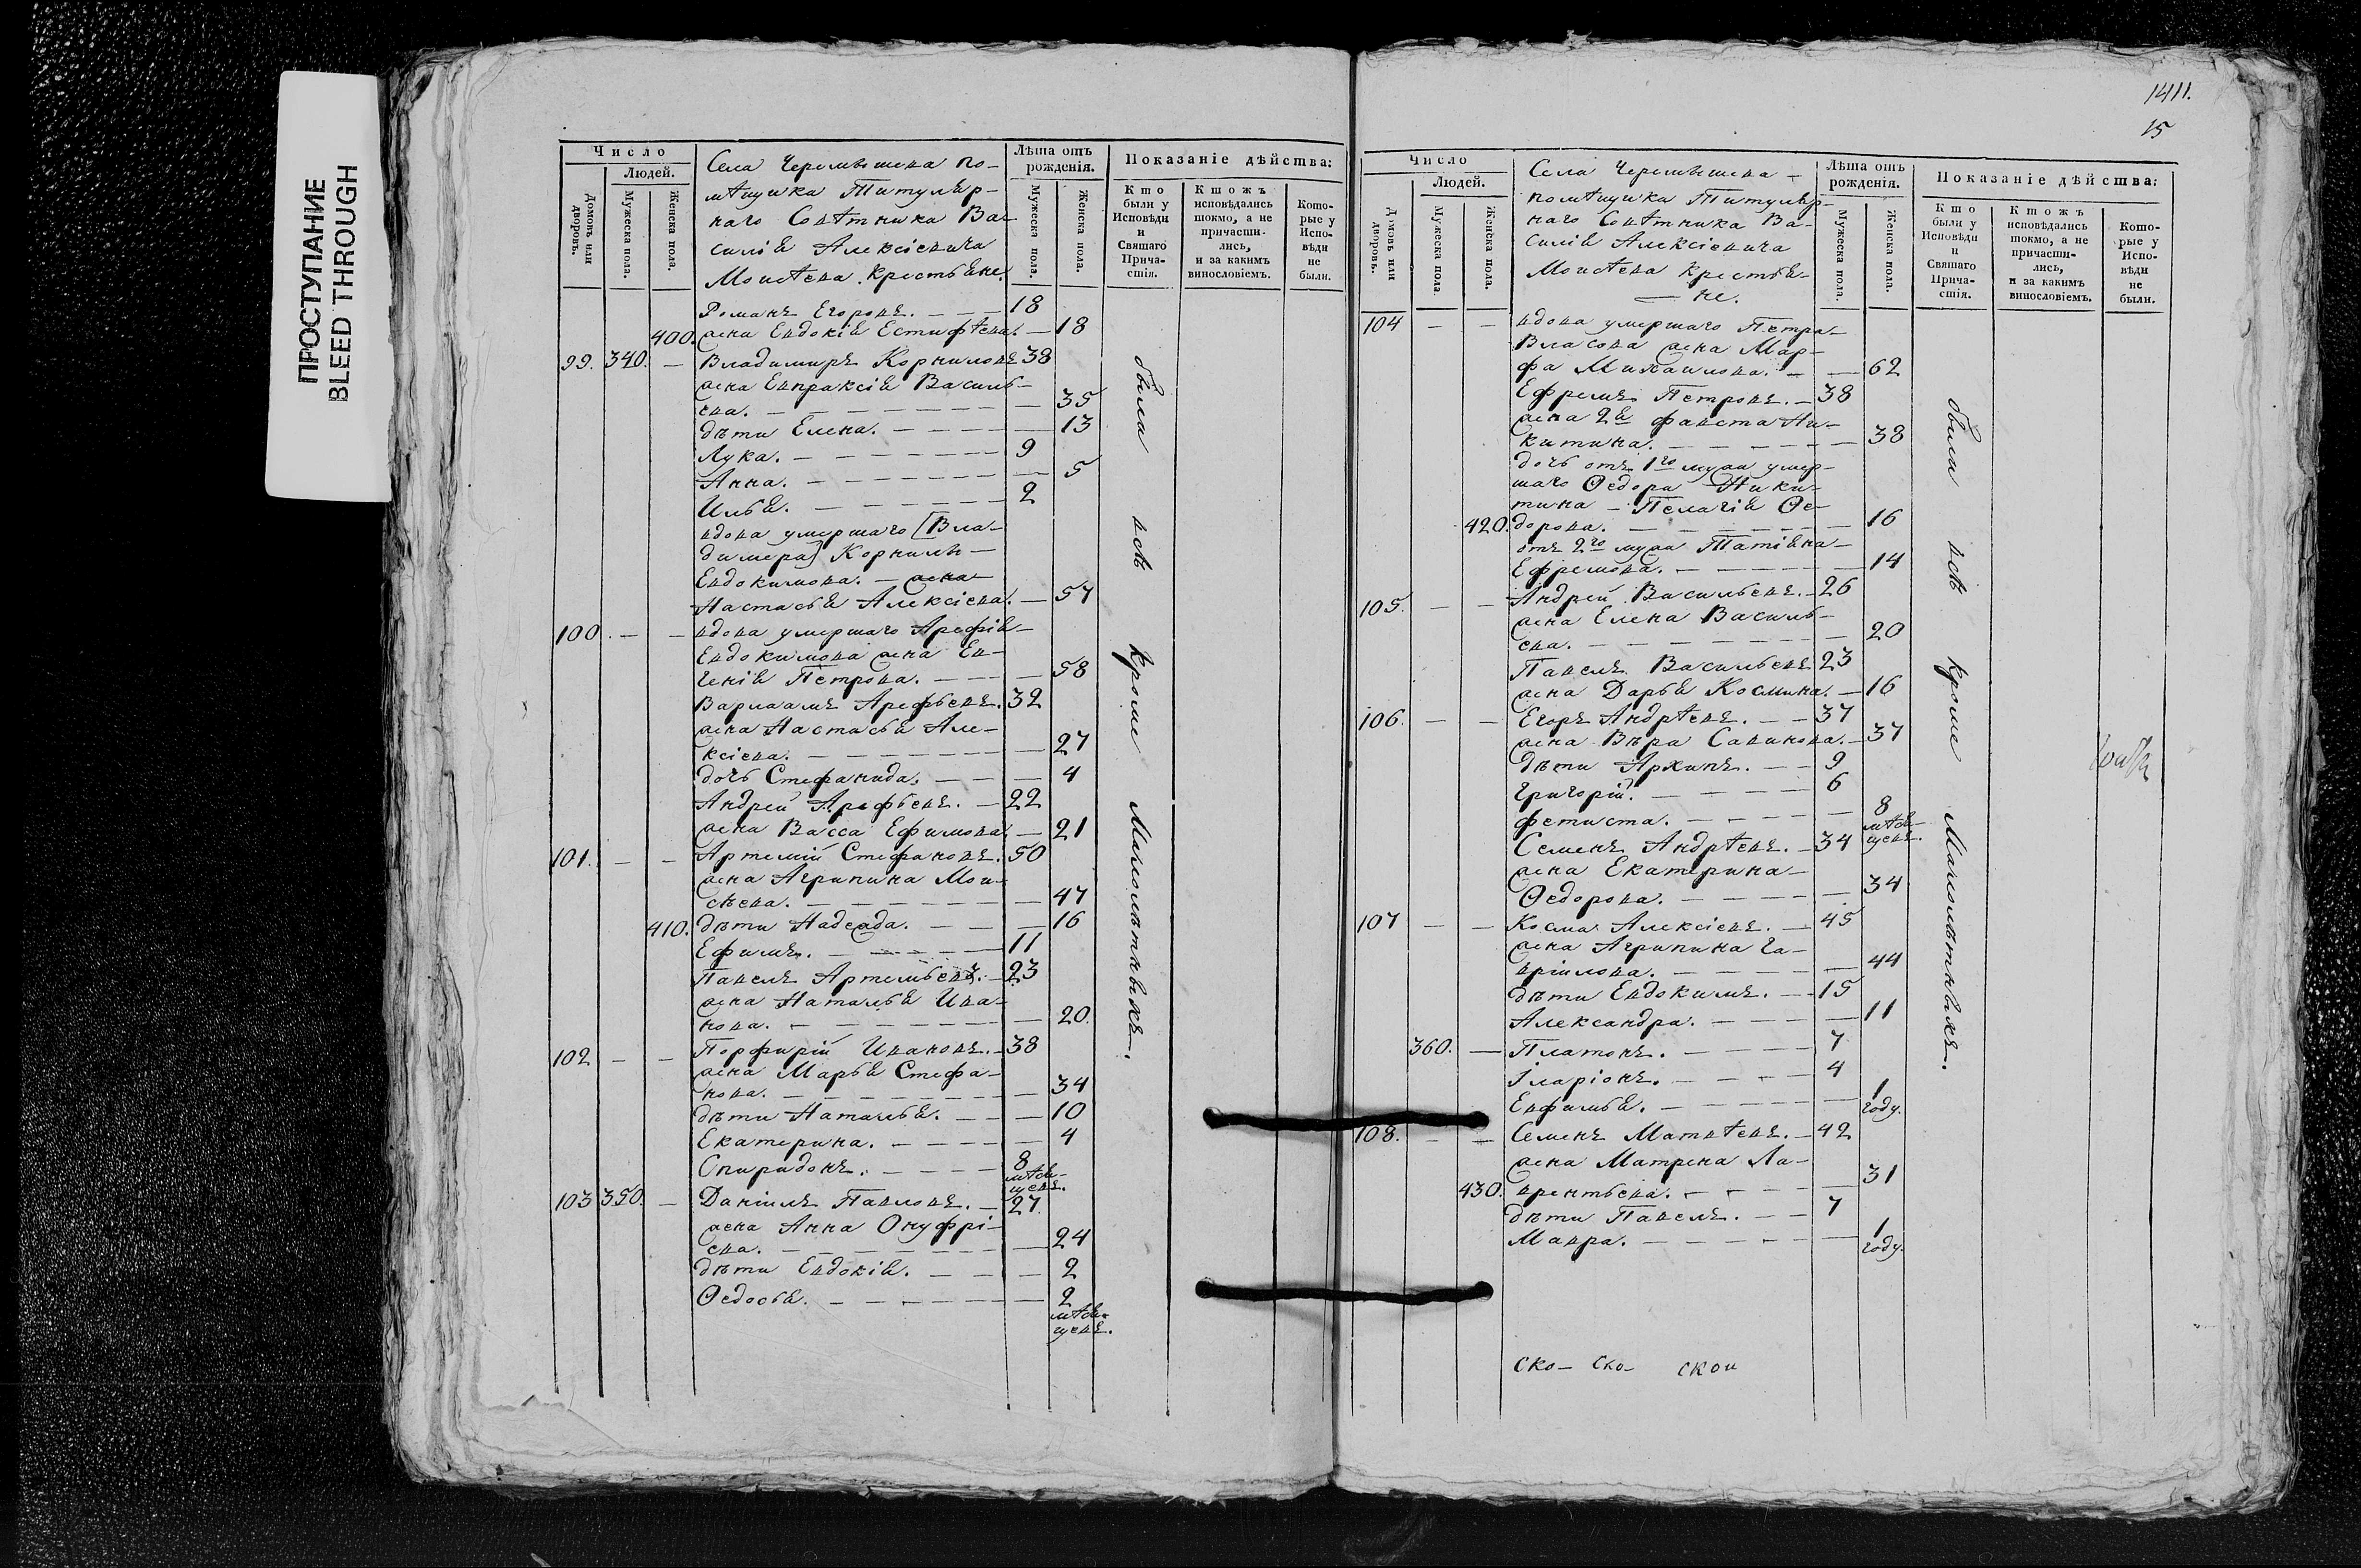 ПРОСТУПАНИЕ
BLEED THROUGH
Число
Людей.
Домовъ или дворовъ.
Мужеска пола.
Женска пола.
Села Черемышева по-
мѣщика Титуляр-
наго Совѣтника Ва-
силія Алексіевича
Моисѣева Крестьяне.
Лѣта отъ рожденія.
Мужеска пола.
Женска пола.
Показаніе дѣйства:
Кто были у Исповѣди и Святаго Прича-стія.
Кто жъ исповѣдались токмо, а не причасти-лись, и за какимъ винословіемъ.
Кото-рые у Испо-вѣди не были.
Романъ Егоровъ. 18
400. жена Евдокія Естифѣева. 18
99. 340. Владимиръ Корниловъ 38
жена Евпраксія Василь-
ева. 35
дѣти Елена. 13
Лука. 9
Анна. 5
Илья. 2
вдова умершаго [Вла-
димера] Корнилы
Евдокимова. жена
Настасья Алексіева. 57
100. вдова умершаго Арефія
Евдокимова жена Ев-
генія Петрова. 58
Варлаамъ Арефьевъ. 32
жена Настасья Але-
ксіева. 27
дочь Стефанида. 4
Андрей Арефьевъ. 22
жена Васса Ефимова. 21
101. Артемій Стефановъ. 50
жена Агрипина Мои-
сѣева. 47
410. дѣти Надежда. 16
Ефимъ. 11
Павелъ Артемьевъ. 23
жена Наталья Ива-
нова. 20.
102 Порфирій Ивановъ. 38
жена Марья Стефа-
нова. 34
дѣти Наталья. 10
Екатерина. 4
Спиридонъ. 8 мѣся-цевъ.
103 350. Даніилъ Павловъ. 27.
жена Анна Онуфрі-
ева. 24
дѣти Евдокія. 2
Ѳедосья. 2 мѣся-цевъ.
были всѣ кроме Малолѣтныхъ.
1411.
15
Число
Людей.
Домовъ или дворовъ.
Мужеска пола.
Женска пола.
Села Черемышева
помѣщика Титуляр-
наго Совѣтника Ва-
силія Алексіевича
Моисѣева Крестья-
не.
Лѣта отъ рожденія.
Мужеска пола.
Женска пола.
Показаніе дѣйства:
Кто были у Исповѣди и Святаго Прича-стія.
Кто жъ исповѣдались токмо, а не причасти-лись, и за какимъ винословіемъ.
Кото-рые у Испо-вѣди не были.
104 вдова умершаго Петра
Власова жена Мар-
фа Михаилова. 62
Ефремъ Петровъ. 38
жена 2я Фавста Ни-
китина. 38
дочь отъ 1го мужа умер-
шаго Ѳедора Ники-
тина Пелагія Ѳе-
420. дорова. 16
отъ 2го мужа Татіана
Ефремова. 14
105. Андрей Васильевъ. 26
жена Елена Василь-
ева. 20
Павелъ Васильевъ 23
жена Дарья Космина. 16
106. Егоръ Андрѣевъ. 37
жена Вѣра Савинова. 37
дѣти Архипъ. 9
Григорій. 6
Фетиста. 8 мѣся-цевъ.
Семенъ Андрѣевъ. 34
жена Екатерина
Ѳедорова. 34
107 Косма Алексіевъ. 45
жена Агрипина Га-
вріилова. 44
дѣти Евдокимъ. 15
Александра. 11
360. Платонъ. 7
Іларіонъ. 4
Евфимья. 1 году.
108. Семенъ Матвѣевъ. 42
жена Матрена Ла-
430. врентьева. 31
дѣти Павелъ. 7
Мавра. 1 году.
были всѣ кроме Малолѣтныхъ.
ско- ско- скои